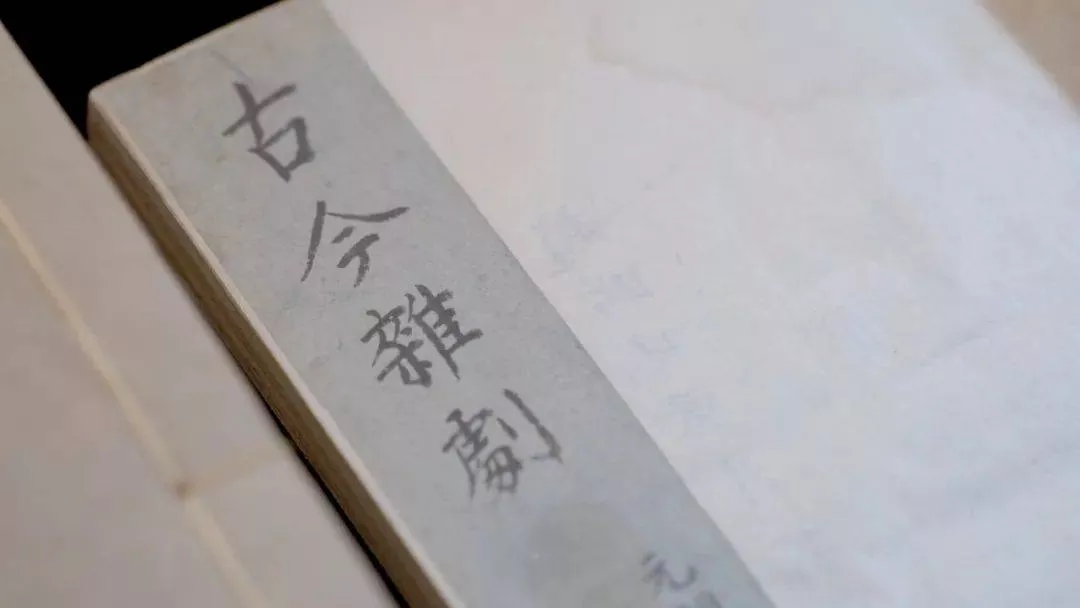 古今雜劇
元